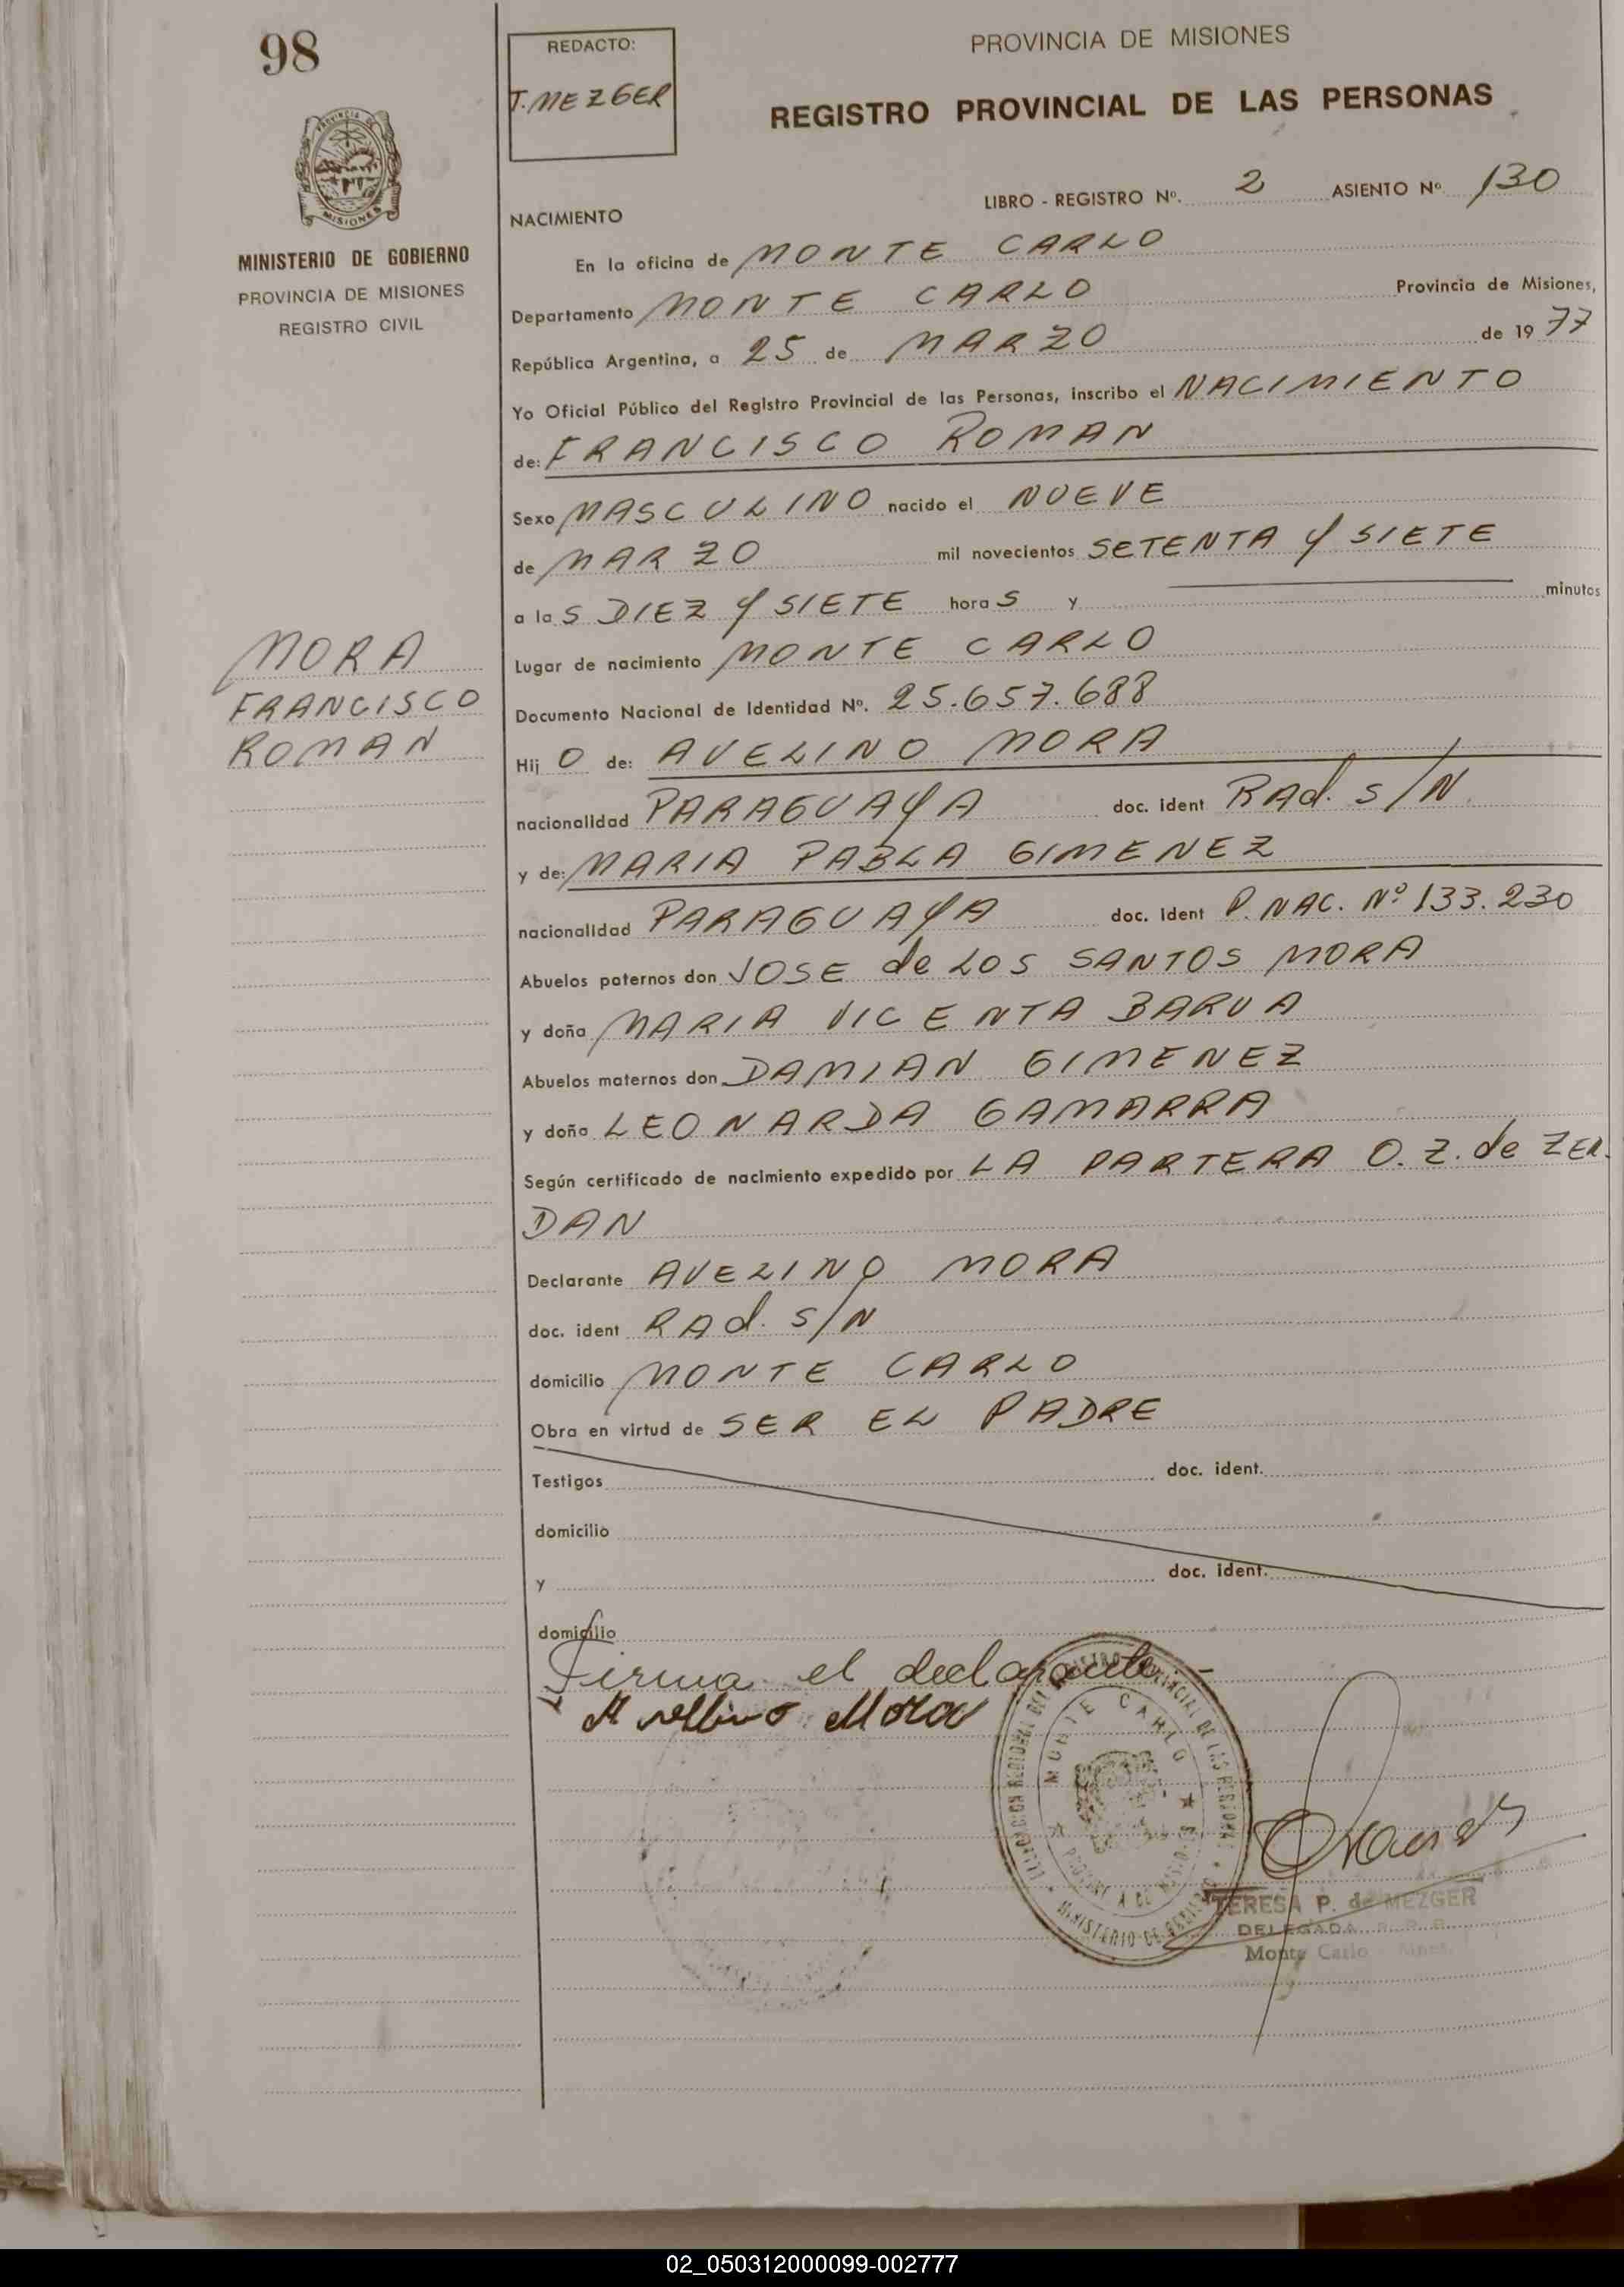 98
REDACTO:
T. MEZGER
PROVINCIA DE MISIONES
REGISTRO PROVINCIAL DE LAS PERSONAS
PROVINCIA DE
MISIONES
MINISTERIO DE GOBIERNO
PROVINCIA DE MISIONES
REGISTRO CIVIL
LIBRO - REGISTRO Nº. 2 ASIENTO Nº 130
NACIMIENTO
En la oficina de MONTE CARLO
Departamento MONTE CARLO Provincia de Misiones,
República Argentina, a 25 de MARZO de 19 77
Yo Oficial Público del Registro Provincial de las Personas, inscribo el NACIMIENTO
de: FRANCISCO ROMAN
Sexo MASCULINO nacido el NUEVE
de MARZO mil novecientos SETENTA Y SIETE
a las DIEZ Y SIETE horas y minutos
Lugar de nacimiento MONTE CARLO
Documento Nacional de Identidad Nº. 25.657.688
Hij O de: AVELINO MORA
nacionalidad PARAGUAYA doc. ident RAd. S/N
y de: MARIA PABLA GIMENEZ
nacionalidad PARAGUAYA doc. ident P. NAC. Nº 133.230
Abuelos paternos don JOSE de LOS SANTOS MORA
y doña MARIA VICENTA BARUA
Abuelos maternos don DAMIAN GIMENEZ
y doña LEONARDA GAMARRA
Según certificado de nacimiento expedido por LA PARTERA O. Z. de ZER.
DAN
Declarante AVELINO MORA
doc. ident RAd. S/N
domicilio MONTE CARLO
Obra en virtud de SER EL PADRE
Testigos doc. ident.
domicilio
y doc. ident.
domicilio
MORA
FRANCISCO
ROMAN
Firma el declarante.-
Avellino Mora
MONTE CARLO
MINISTERIO DE GOBIERNO
TERESA P. de MEZGER
DELEGADA R. R. P.
Monte Carlo
02_050312000099-002777